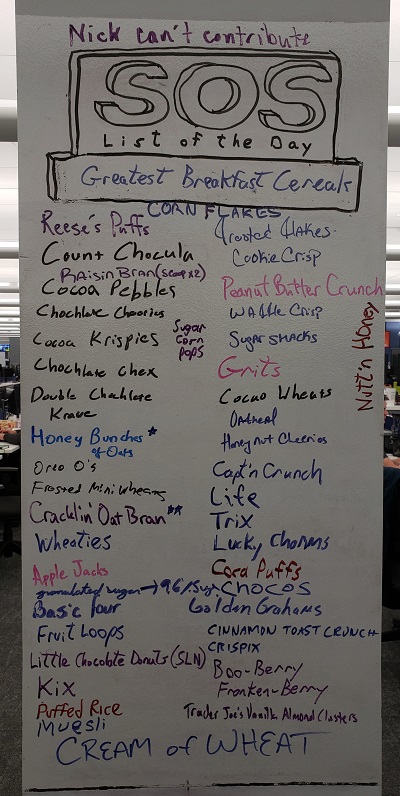 Nick can't contribute
SOS
List of the Day
Greatest Breakfast Cereals
CORN FLAKES
Reese's Puffs
Count Chocula
RAisin Bran (scoop x2)
Cocoa Pebbles
Chocolate Cheerios
Cocoa Krispies
Sugar
Corn
Pops
Chocolate Chex
Double Chocolate
Krave
Honey Bunches *
of Oats
Oreo O's
Frosted Mini Wheats
Cracklin' Oat Bran **
Wheaties
Apple Jacks
granulated sugar → 96%
Basic Four
Fruit Loops
Little Chocolate Donuts (SLN)
Kix
Puffed Rice
Muesli
CREAM of WHEAT
Frosted Flakes
Cookie Crisp
Peanut Butter Crunch
Waffle Crisp
Sugar SMACKS
Grits
Cocao Wheats
Oatmeal
Honey nut Cheerios
Capt'n Crunch
Life
Trix
Lucky Charms
Corn Puffs
CHOCOS
Golden Grahams
CINNAMON TOAST CRUNCH
CRISPIX
Boo-Berry
Franken-Berry
Trader Joe's Vanilla Almond Clusters
Nutt'n Honey